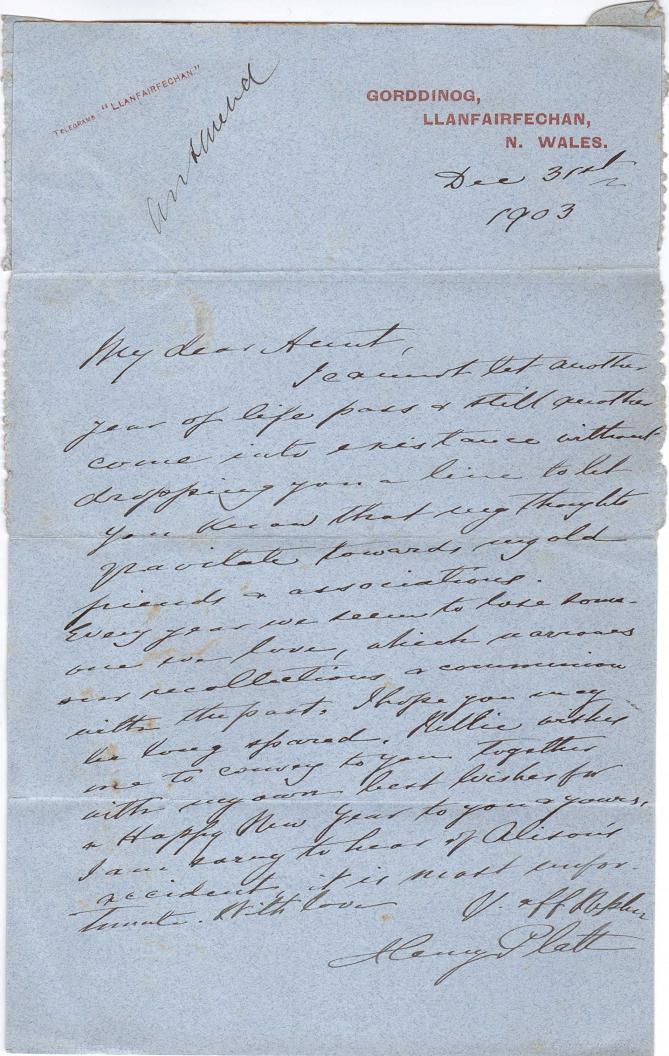 TELEGRAMS "LLANFAIRFECHAN"
answered
GORDDINOG,
LLANFAIRFECHAN,
N. WALES.
Dec 31st
1903
My dear Aunt,
I cannot let another
year of life pass & still another
come into existance without
dropping you a line to let
you know that my thoughts
gravitate towards my old
friends & associations.
Every year we seem to lose some-
one we love, which narrows
our recollections & communion
with the past. I hope you may
be long spared. Nellie wishes
me to convey to you together
with my own best wishes for
a Happy New Year to you & yours.
I am sorry to hear of Alison's
accident, it is most unfor-
tunate. With love
Y. aff Nephew
Henry Platt